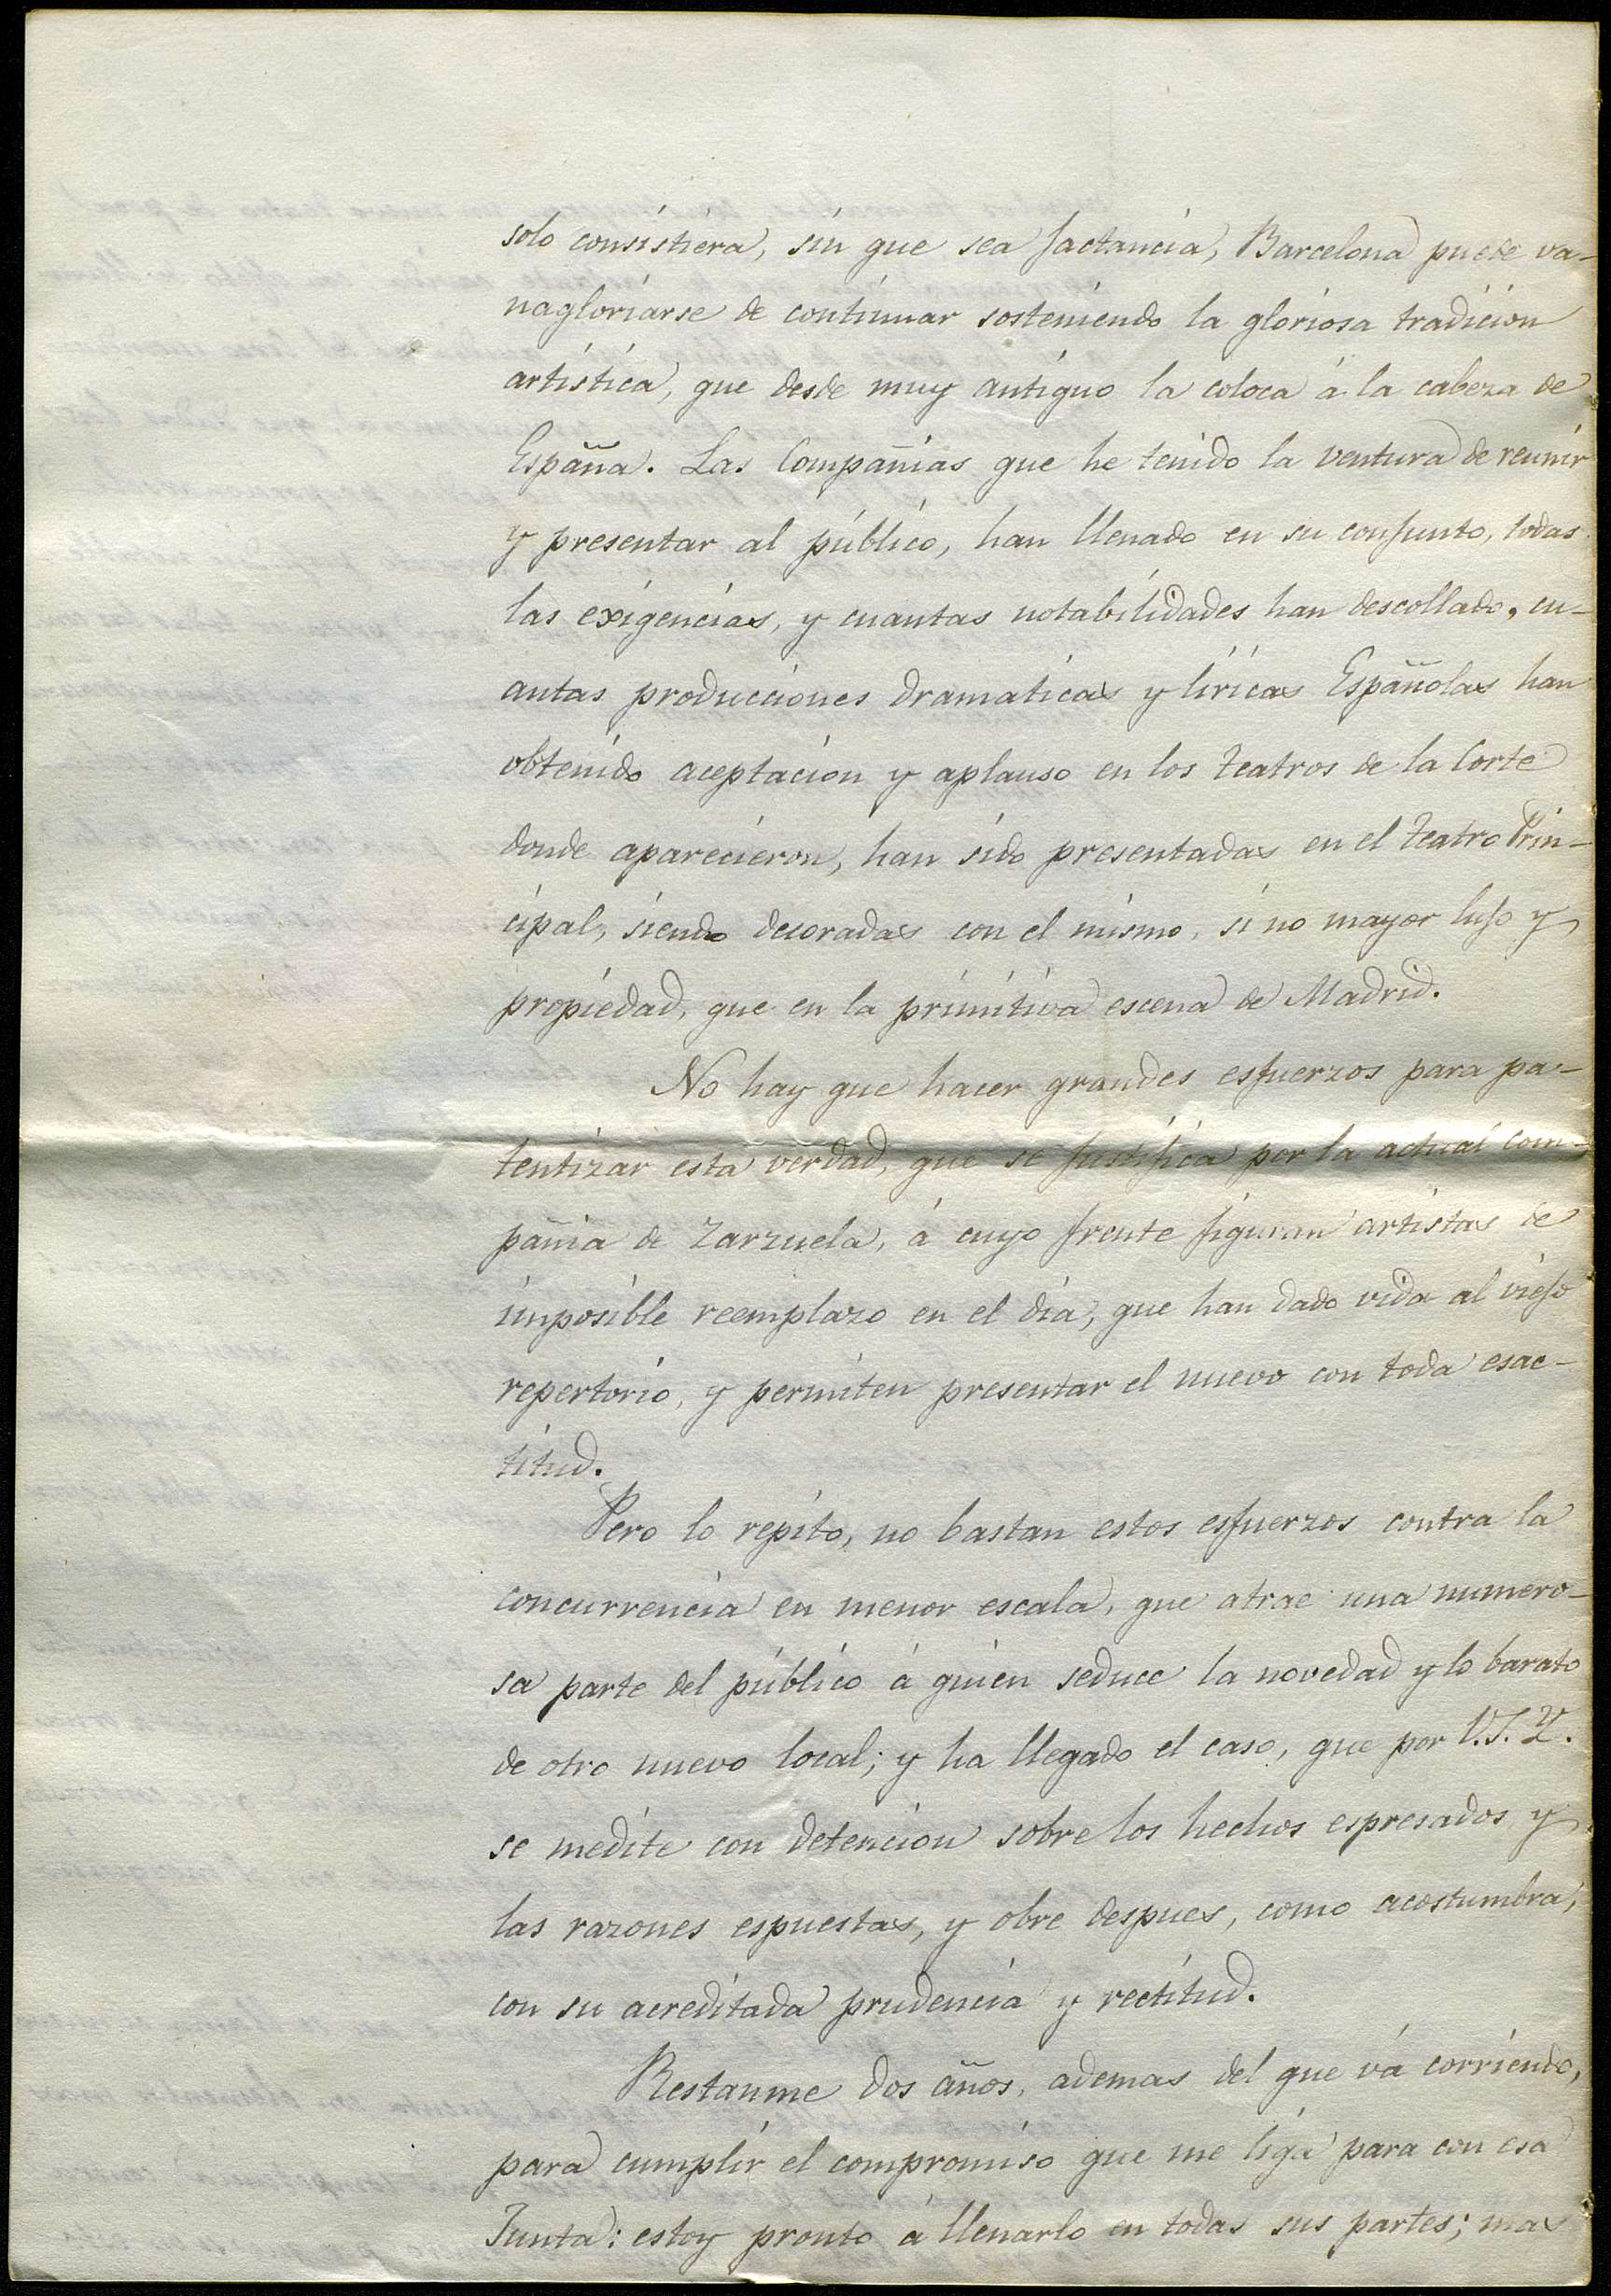 solo consistiera, sin que sea jactancia, Barcelona puede va-
nagloriarse de continuar sosteniendo la gloriosa tradicion
artística, que desde muy antiguo la coloca á la cabeza de
España. Las Compañias que he tenido la ventura de reunir
y presentar al público, han llenado en su conjunto, todas
las exigencias, y cuantas notabilidades han descollado, cu-
antas producciones dramaticas y líricas Españolas han
obtenido aceptacion y aplauso en los teatros de la Corte
donde aparecieron, han sido presentadas en el teatro Prin-
cipal, siendo decoradas con el mismo, si no mayor lujo y
propiedad, que en la primitiva escena de Madrid.
No hay que hacer grandes esfuerzos para pa-
tentizar esta verdad, que se justifica por la actual com-
pañia de Zarzuela, á cuyo frente figuran artistas de
imposible reemplazo en el dia, que han dado vida al viejo
repertorio, y permiten presentar el nuevo con toda esac-
titud.
Pero lo repito, no bastan estos esfuerzos contra la
concurrencia en menor escala, que atrae una numero-
sa parte del público á quien seduce la novedad y lo barato
de otro nuevo local; y ha llegado el caso, que por V.S.Y.
se medite con detencion sobre los hechos espresados y
las razones espuestas, y obre despues, como acostumbra,
con su acreditada prudencia y rectitud.
Restanme dos años, ademas del que vá corriendo,
para cumplir el compromiso que me liga para con esa
Junta: estoy pronto á llenarlo en todas sus partes; mas